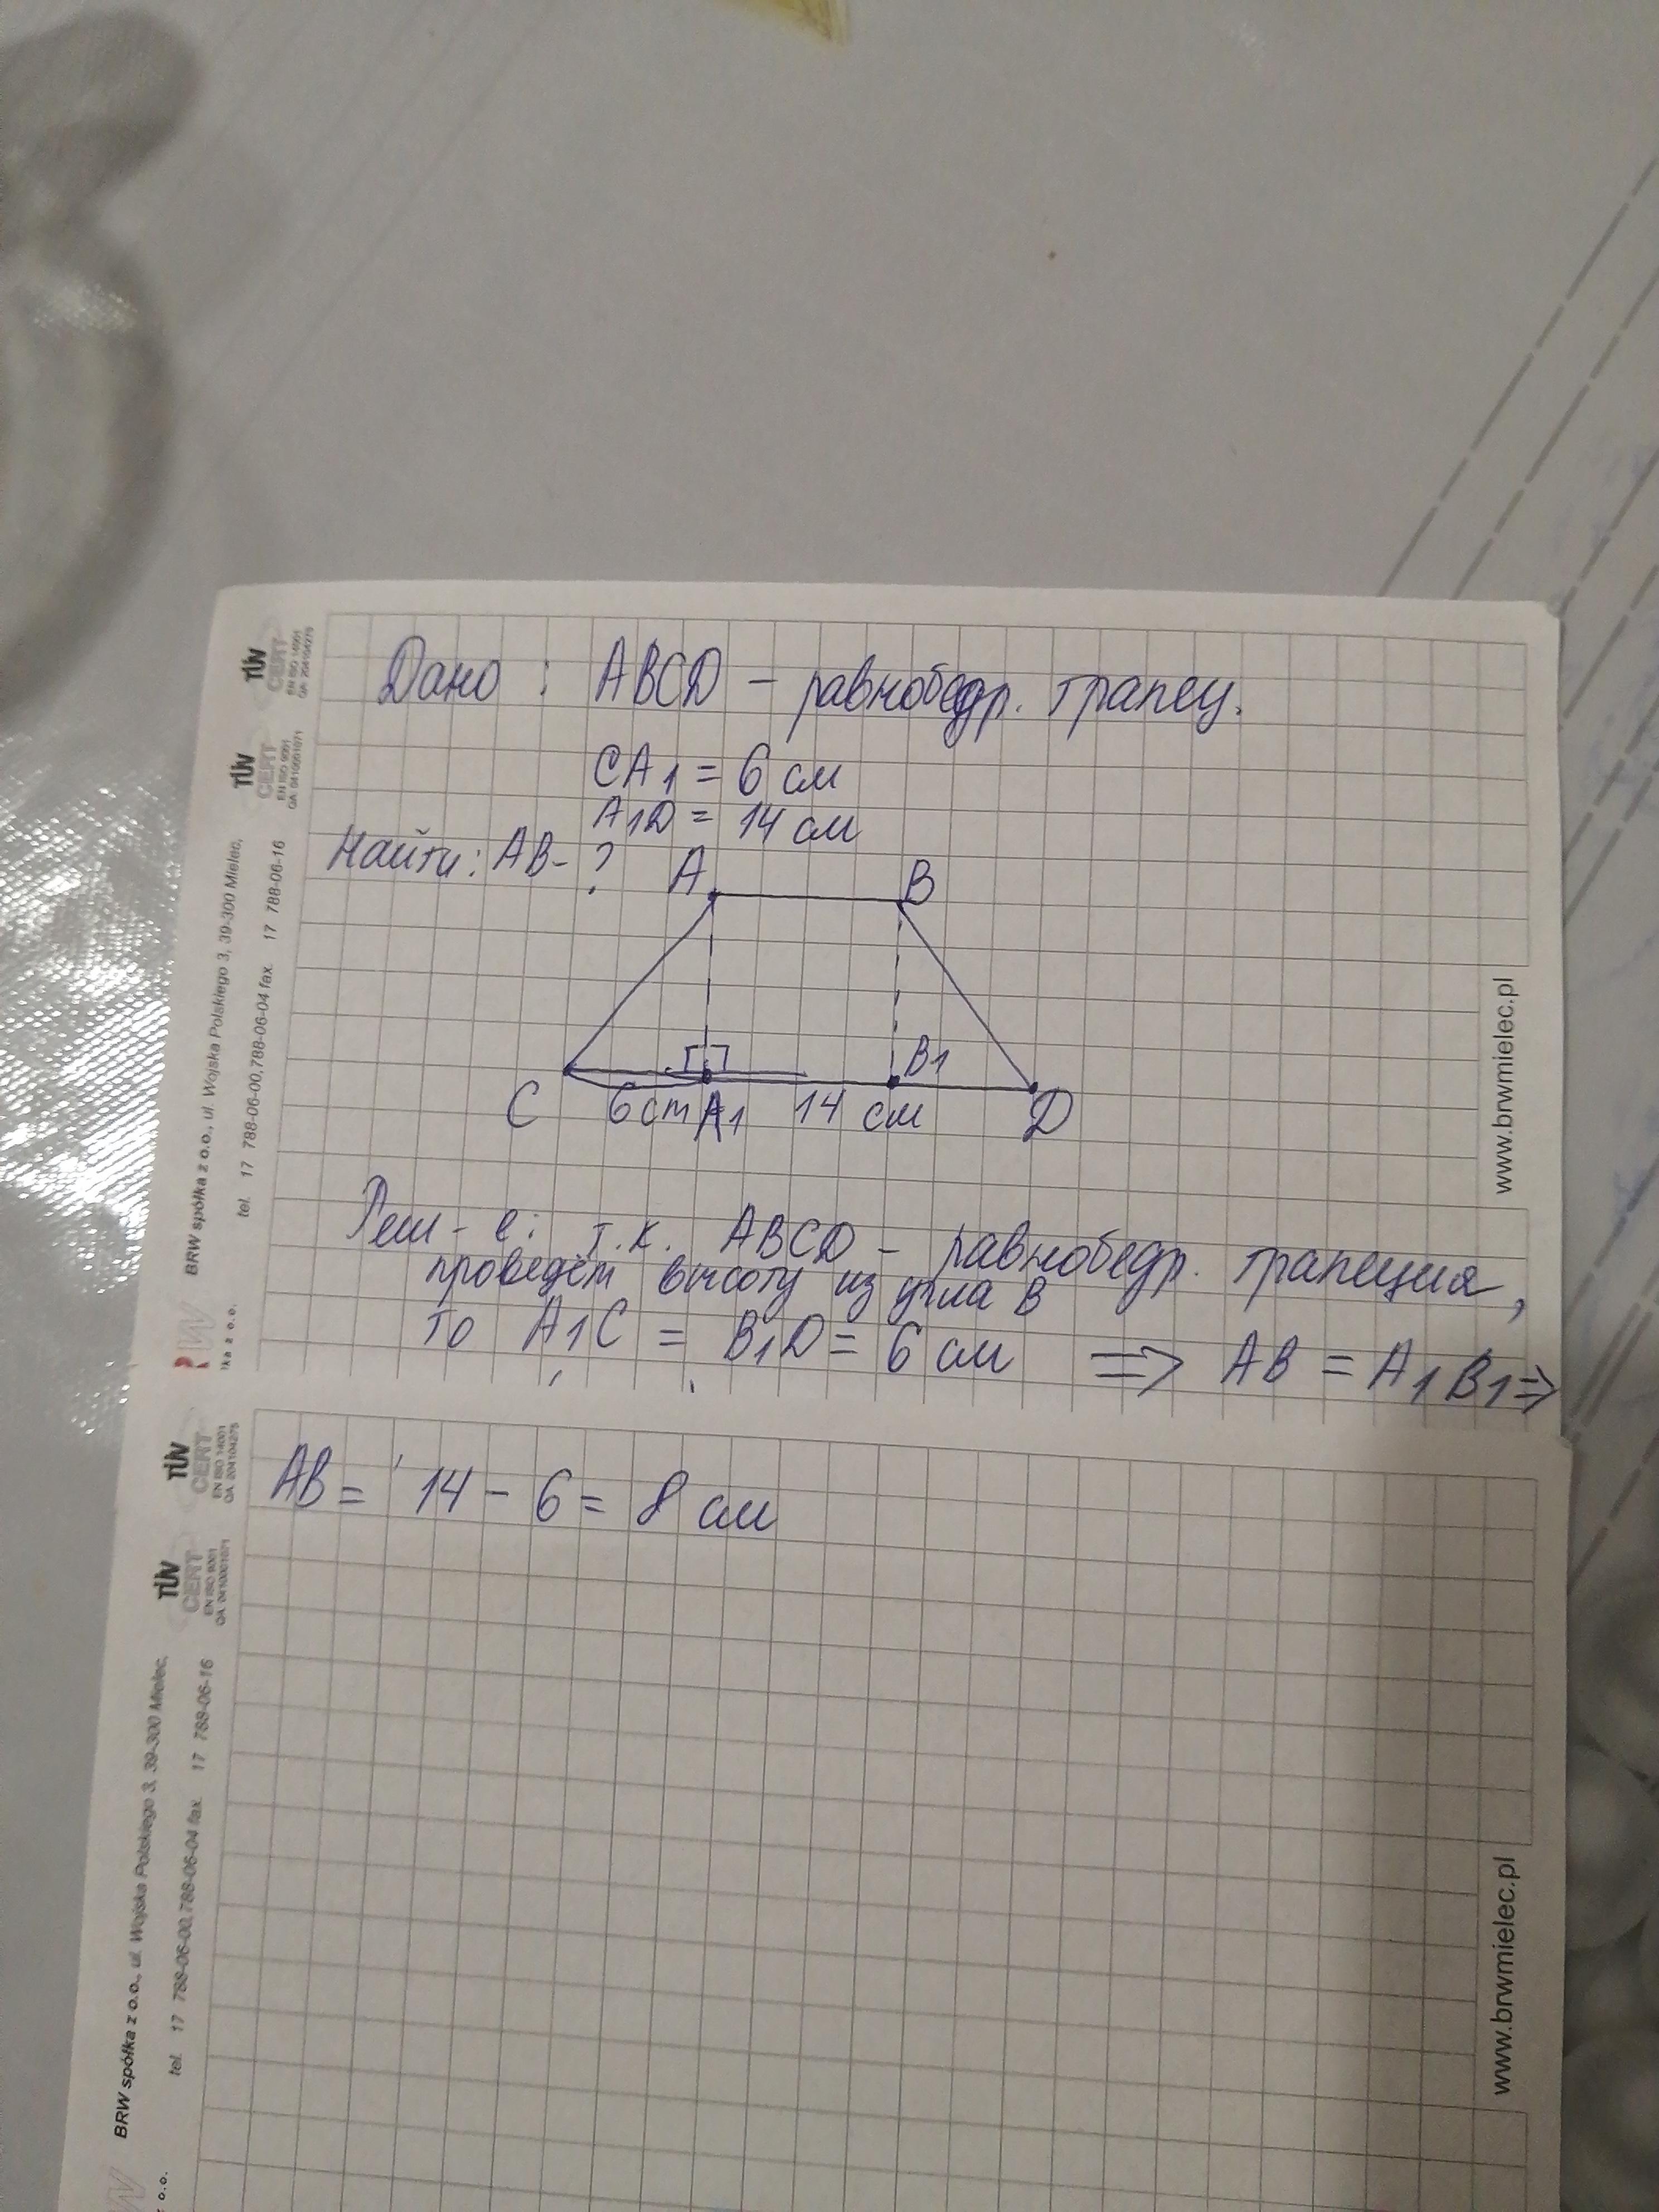 Дано: ABCD - равнобедр. трапец.
CA1 = 6 см
A1D = 14 см
Найти: AB - ?
A B
B1
C 6cm A1 14 см D
Реш-е: т.к. ABCD - равнобедр. трапеция,
проведём высоту из угла B
то A1C = B1D = 6 см => AB = A1B1 =>
AB = 14 - 6 = 8 см
TÜV CERT
EN ISO 14001
TÜV CERT
EN ISO 9001
BRW spółka z o.o., ul. Wojska Polskiego 3, 39-300 Mielec,
tel. 17 788-06-00,788-06-04 fax. 17 788-06-16
www.brwmielec.pl
TÜV CERT
EN ISO 14001
TÜV CERT
EN ISO 9001
BRW spółka z o.o., ul. Wojska Polskiego 3, 39-300 Mielec,
tel. 17 788-06-00,788-06-04 fax. 17 788-06-16
www.brwmielec.pl